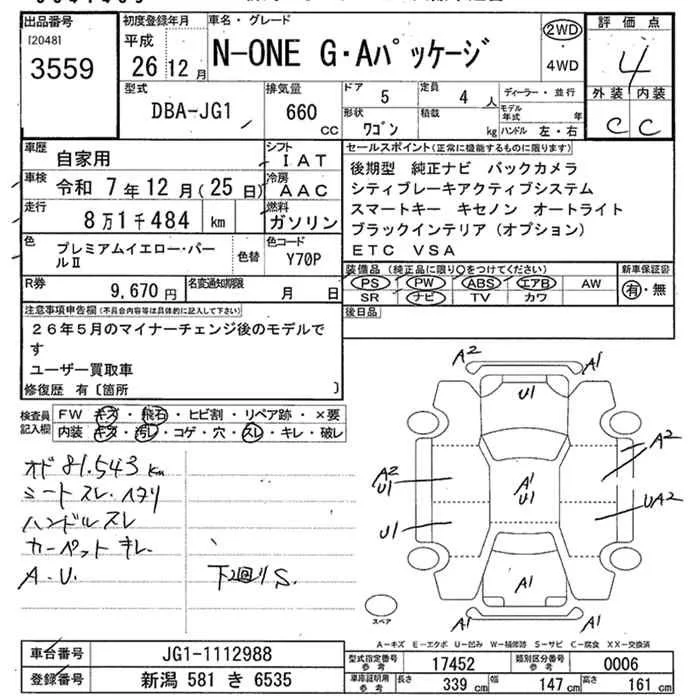 出品番号
[2048]
3559
初度登録年月
平成
26 12 月
車名・グレード
N-ONE G・Aパッケージ
2WD
・4WD
評価点
4
外装 内装
C C
型式
DBA-JG1
排気量
660 CC
ドア 5
定員 4 人
形状 ワゴン
積載 kg
ディーラー・並行
モデル年式 年
ハンドル 左・右
車歴 自家用
シフト IAT
車検 令和 7年12月(25日)
冷房 AAC
走行 8万1千484 km
燃料 ガソリン
色 プレミアムイエロー・パールⅡ
色替
色コード Y70P
R券 9,670円
名変通知期限 月 日
セールスポイント(正常に機能するものに限ります)
後期型 純正ナビ バックカメラ
シティブレーキアクティブシステム
スマートキー キセノン オートライト
ブラックインテリア(オプション)
ETC VSA
装備品(純正品に限り○をつけてください)
新車保証書
PS PW ABS エアB AW
SR ナビ TV カワ
有・無
後日品
注意事項申告欄(不具合内容等は具体的に記入して下さい)
26年5月のマイナーチェンジ後のモデルで
す
ユーザー買取車
修復歴 有〔箇所 〕
検査員記入欄
FW キズ・飛石・ヒビ割・リペア跡・×要
内装 キズ・汚レ・コゲ・穴・スレ・キレ・破レ
オド 81.543 km
シートスレ.ヘタリ
ハンドルスレ
カーペットキレ
A.U.
下廻りS.
A2
A1
U1
A2
A2
U1
A1
U1
UA2
U1
A1
A1
A1
スペア
A-キズ E-エクボ U-凹み W-補修跡 S-サビ C-腐食 XX-交換済
車台番号 JG1-1112988
登録番号 新潟 581 き 6535
型式指定番号 参考 17452
類別区分番号 参考 0006
車庫証明用 参考 長さ 339 cm 幅 147 cm 高さ 161 cm